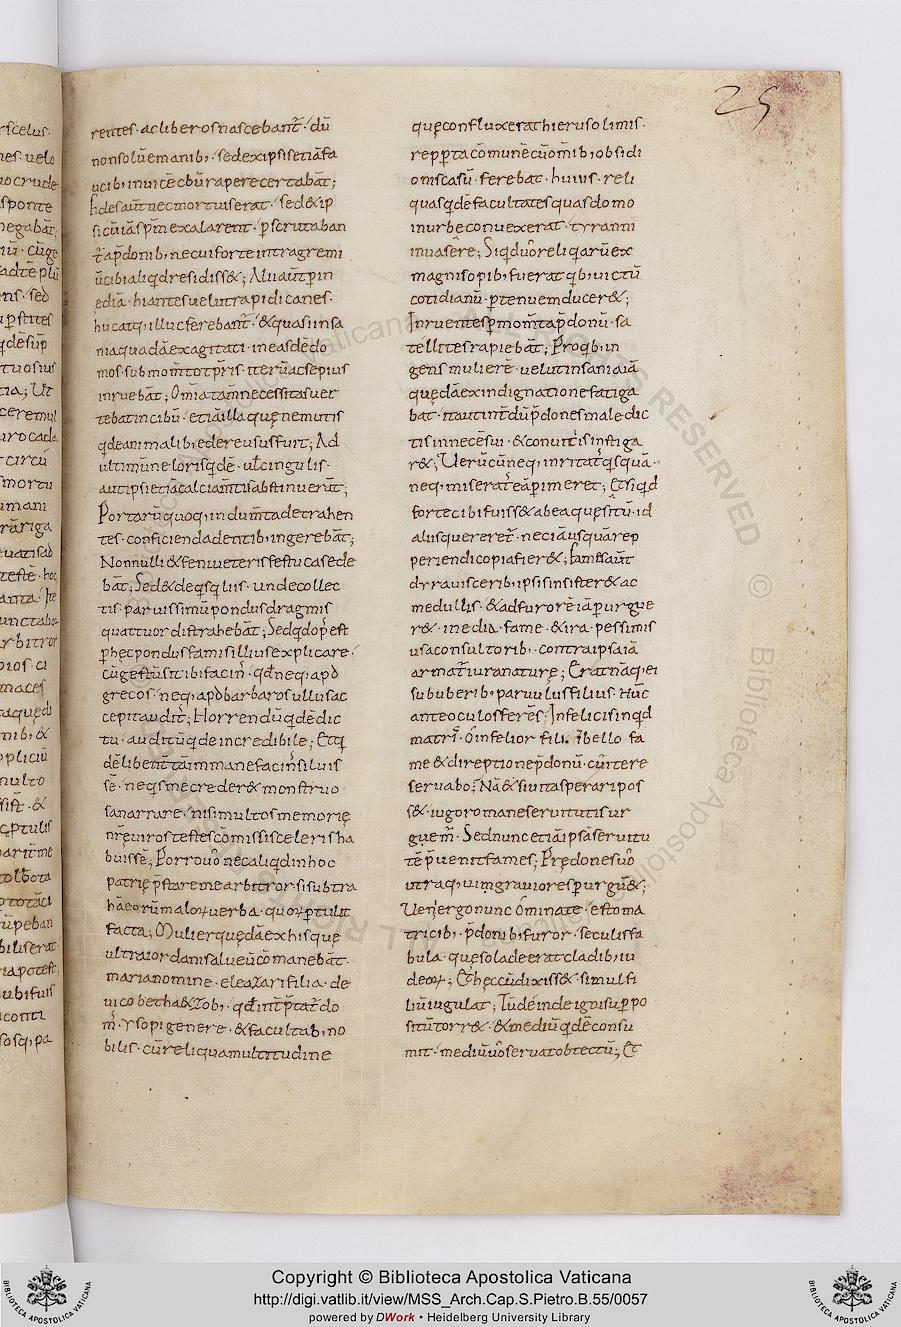 25
rentes · ac liberos nascebant̄ · dū
non solū e manib; · sed ex ipsis etiā fa
ucib; inuicē cb̄u rapere certabāt;
Fides aūt nec mortuis erat · sed & ip
si cū iā sp̄m exalarent · p scrutaban
t̄ a p̄donib; ne cui forte intra gremi
ū cibi aliqd resedisset; Alii aūt p in
ediā · hiantes uelut rapidi canes ·
huc atq; illuc ferebant̄ · & quasi insa
nia quadā exagitati · in easdē do
mos · sub mom̄to tp̄ris · iterū ac sepius
inruebāt; Om̄ia tam̄ necessitas uer
tebat in cibū · etiā illa que ne mutis
qdē animalib; edere usus fuit; Ad
ultimū ne loris qdē · ul̄ cingulis ·
aut ipsi etiā calciam̄tis abstinuerūt;
Portarū quoq; indum̄ta detrahen
tes · conficienda dentib; ingerebāt;
Nonnulli & feni ueteris festucas ede
bāt; Sed & deqsqliis · unde collec
tis · paruissimū pondus dragmis
quattuor distrahebāt; Sed qd op' est
p hec pondus famis illius explicare ·
cū gestū sit ibi facin' · qd neq; apd
grecos · neq; apd barbaros ullus ac
cepit audit'; Horrendū qdē dic
tu · auditū qde incredibile; Et q
dē libent̄ tā immane facin' siluis
sē · ne qs me crederet monstruo
sa narrare · nisi multos memorię
nr̄e uiros testes cōmissi sceleris ha
buissē; Porro uo nec aliqd in hoc
patrię p̄stare me arbitror · si subtra
hā eorū malorū uerba · quorū ptulit
facta; Mulier quędā ex his quę
ultra iordanis alueū cōmanebāt ·
maria nomine · eleazari filia · de
uico bethaezob; · qd int̄p̄tat̄ do
m' · ysopi genere · & facultab; no
bilis · cū reliqua multitudine
quę confluxerat hierusolimis ·
repp̄ta cōmunē cū om̄ib; obsidi
onis casū · ferebat · huius · reli
quas qdē facultates quas domo
in urbe conuexerat · tyranni
inuasere; Siqd uo reliqarū ex
magnis opib; fuerat qb; uictū
cotidianū · p tenuem duceret;
Inruentes p mom̄ta p̄donū · sa
tellites rapiebāt; Pro qb; in
gens mulierē · uelut insania iā
quędā ex indignatione fatiga
bat
tis in necē sui · & conuitiis instiga
ret; Uerū cū neq; irritat' qsquā ·
neq; miserat' eā pimeret; Et siqd
forte cibi fuisset ab ea quesitū · id
aliis quereret̄ · nec iā usquā rep
periendi copia fieret; Fam̄s aūt
dyra uiscerib; ipsis insisteret ac
medullis · & ad furorē iā purgue
ret · inedia · fame · & ira · pessimis
usa consultorib; · contra ipsa iā
armat̄ iura naturę; Erat nāq; ei
sub uberib; paruulus filius · Hūc
ante oculos ferēs · Infelicis inqd
matri' · o infelior fili · ī bello fa
me & direptione p̄donū · cui te re
seruabo; Nā & si uita sperari pos
set · iugo romane seruitutis ur
guem' · Sed nunc etiā ipsā seruitu
tē p̄uenit fames; Prędones uo
utraq; ui m̄ grauiores purgūet;
Uen' ergo nunc o mi nate · esto ma
tri cib; · p̄donib; furor · seculis fa
bula · quę sola deerat cladib; iu
deorū; Et hec cū dixisset · simul fi
liū iugulat; Tū deinde igni supp̄o
sitū torret · & mediū qdē consu
mit · mediū uo seruat obtectū; Et
Copyright © Biblioteca Apostolica Vaticana
http://digi.vatlib.it/view/MSS_Arch.Cap.S.Pietro.B.55/0057
powered by DWork • Heidelberg University Library